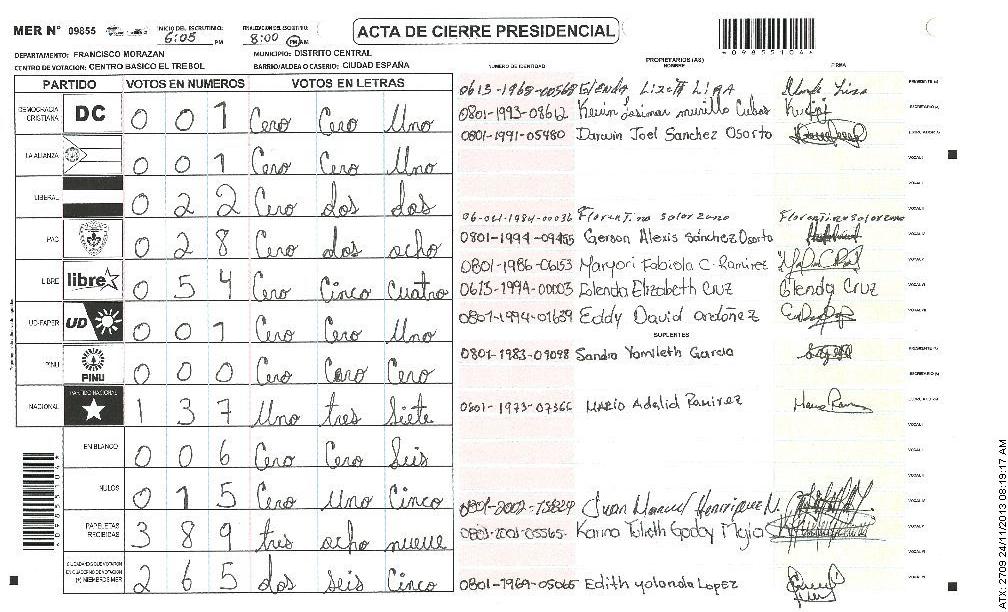 MER N° 09855 INICIO DEL ESCRUTINIO: 6:05 PM FINALIZACION DEL ESCRUTINIO: 8:00 AM PM
ACTA DE CIERRE PRESIDENCIAL
*09855104*
DEPARTAMENTO: FRANCISCO MORAZAN MUNICIPIO: DISTRITO CENTRAL
CENTRO DE VOTACION: CENTRO BASICO EL TREBOL BARRIO/ALDEA O CASERIO: CIUDAD ESPAÑA
PARTIDO VOTOS EN NUMEROS VOTOS EN LETRAS
NUMERO DE IDENTIDAD PROPIETARIOS (AS) NOMBRE FIRMA
DEMOCRACIA CRISTIANA DC 0 0 1 Cero Cero Uno
LA ALIANZA 0 0 1 Cero Cero Uno
LIBERAL 0 2 2 Cero dos dos
PAC 0 2 8 Cero dos ocho
LIBRE libre 0 5 4 Cero Cinco Cuatro
UD-FAPER UD 0 0 1 Cero Cero Uno
PINU PINU 0 0 0 Cero Cero Cero
NACIONAL PARTIDO NACIONAL 1 3 7 Uno tres Siete
EN BLANCO 0 0 6 Cero Cero Seis
NULOS 0 1 5 Cero Uno Cinco
PAPELETAS RECIBIDAS 3 8 9 tres ocho nueve
CIUDADANOS QUE VOTARON EN CUADERNO DE VOTACION (+) MIEMBROS MER 2 6 5 dos Seis Cinco
0615-1965-00568 Glenda Lizeth LIRA
0801-1993-08612 Kevin murillo Cubas
0801-1991-05480 Darwin Joel Sanchez Osorto
Florentino solorzano Florentino solorzano
Gerson Alexis Sánchez Osorto
0801-1986-06153 Maryori Fabiola C. Ramirez
0615-1994-00003 Elizabeth Cruz Glenda Cruz
0801-1994-01639 Eddy David Ordoñez
SUPLENTES
0801-1983-09098 Sandra Yamileth Garcia
0801-1973-07366 Mario Adalid Ramirez
Juan Manuel Henriquez N.
Karina Julieth Godoy Mejia
0801-1969-05065 Edith yolanda Lopez
ATX 2709 24/11/2013 08:19:17 AM